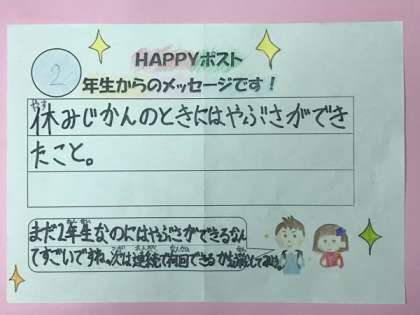 HAPPYポスト
2
年生からのメッセージです！
休みじかんのときにはやぶさができ
たこと。
まだ2年生なのにはやぶさができるなん
てすごいですね。次は連続で何回できるか挑戦してみよう。